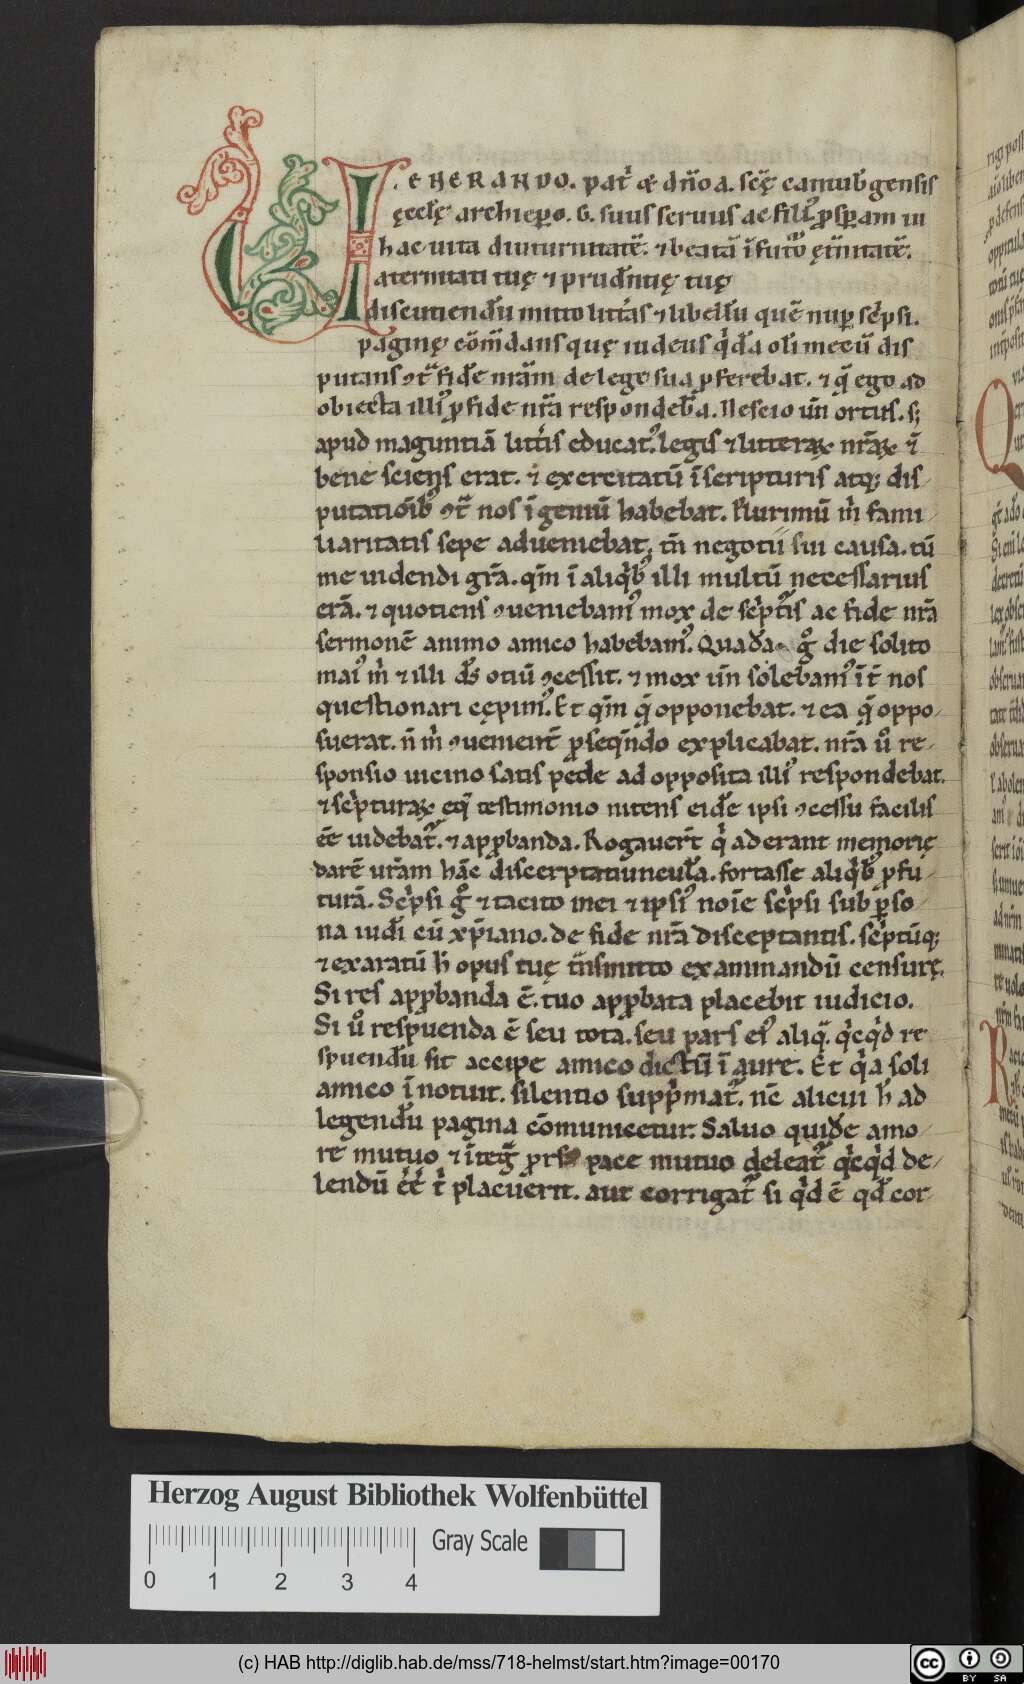 U
. EHERANDO. pat᷒ & dn̄o a. sc̄ę cantub̄gensis
ęccl̄ę archiep̄o. G. suus seruus ac filiꝰ ꝓsꝑam in
hac uita diuturnitatē. ⁊ beatā ī futͦo ęt̄nitatē.
aternitati tuę ⁊ prud̄ntię tuę
discutiend̄u mitto litt̄as ⁊ libell̄u quē nuꝑ sc͛psi.
paginę cōm̄dans quę iudeus q͛d̄a olī mecū dis
putans ꝯt͛ fid̄e nr̄am de lege sua ꝓferebat. ⁊ q̄ ego ad
obiecta illiꝰ ꝓ fide nr̄a respondeb̄a. Nescio ūn ortus. s;
apud maguntiā litt̄is educatꝰ. legis ⁊ litteraꝝ nr̄aꝝ ⁊̄
bene sciens erat. ⁊ exercitatū ī scripturis atq; dis
putatiōibꝰ ꝯt͛ nos īgeniū habebat. Plurimū m̊ fami
liaritatis sepe adueniebat, tn̄ negotii sui causa. tū
me uidendi gr̄a. qm̄ ī aliq͛bꝰ illi multū necessarius
erā. ⁊ quotiens ꝯueniebamꝰ mox de sc͛pt͛is ac fide nr̄a
sermonē animo amico habebamꝰ. Quada gͦ die solito
maiꝰ m̊ ⁊ illi d̄s otiū ꝯcessit. ⁊ mox ūn solebamꝰ īt̄ nos
questionari cępimꝰ. Et qm̄ q̄ opponebat. ⁊ ea q̄ oppo
suerat. n̄ m̊ ꝯuenient̄ ꝓseq̄ndo explicabat. nr̄a uͦ re
sponsio uicino satis pede ad opposita illiꝰ respondebat.
⁊ sc͛pturaꝝ eq̄ testimonio nitens eid̄e ipsi ꝯcessu facilis
ēe uidebat᷒. ⁊ apꝓbanda. Rogauer̄t q͛ aderant memorię
darē ur̄am hāc disceptatiuncul̄a. fortasse aliq͛bꝰ ꝓfu
turā. Sc͛psi gͦ ⁊ tacito mei ⁊ ipsiꝰ noīe sc͛psi sub ꝑso
na iud̄i cū xp̄iano. de fide nr̄a disceptantis. sc͛ptūq;
⁊ exaratū h̄ opus tuę t̄nsmitto examinandū censurę.
Si res apꝓbanda ē. tuo apꝓbata placebit iudicio.
Si uͦ respuenda ē seu tota. seu pars eiꝰ aliq̄. q͛cq͛d re
spuend̄u sit accipe amico dictū ī aure. Et q͛a soli
amico īnotuit. silentio supp͛mat᷒. nē alicui h̄ ad
legend̄u pagina cōmunicetur. Saluo quid̄e amo
re mutuo ⁊ īteg̃ pace mutuo deleat᷒ q͛cq͛d de
lendū ēē t͛ placuerit. aut corrigat᷒ si q͛d ē qd̄ cor
Herzog August Bibliothek Wolfenbüttel
Gray Scale
0 1 2 3 4
(c) HAB http://diglib.hab.de/mss/718-helmst/start.htm?image=00170
cc BY SA